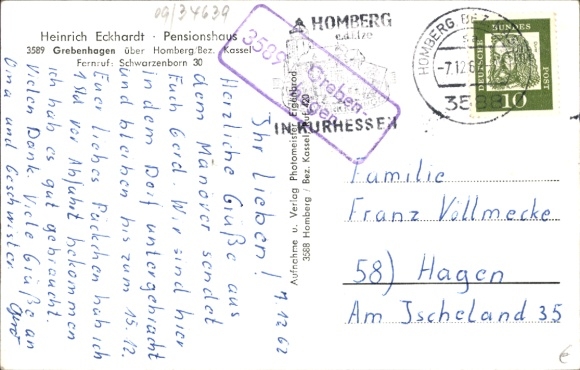 09/34639
Heinrich Eckhardt · Pensionshaus
3589 Grebenhagen über Homberg/Bez. Kassel
Fernruf: Schwarzenborn 30
3589 Greben-
hagen
HOMBERG
e.d.Efze
IN KURHESSEN
HOMBERG BEZ.
-7.12.6
3588
DEUTSCHE BUNDESPOST
10
7.12.62
Ihr Lieben!
Herzliche Grüße aus
dem Manöver sendet
Euch Gerd. Wir sind hier
in dem Dorf untergebracht
und bleiben bis zum 15.12.
Euer liebes Päckchen hab ich
1 Std vor Abfahrt bekommen
ich hab es gut gebraucht.
Vielen Dank. Viele Grüße an
Oma und Geschwister
Gerd
Aufnahme u. Verlag Photomeister Eigenbrod
3588 Homberg / Bez. Kassel, Ruf 420
Familie
Franz Völlmecke
58) Hagen
Am Ischeland 35
€